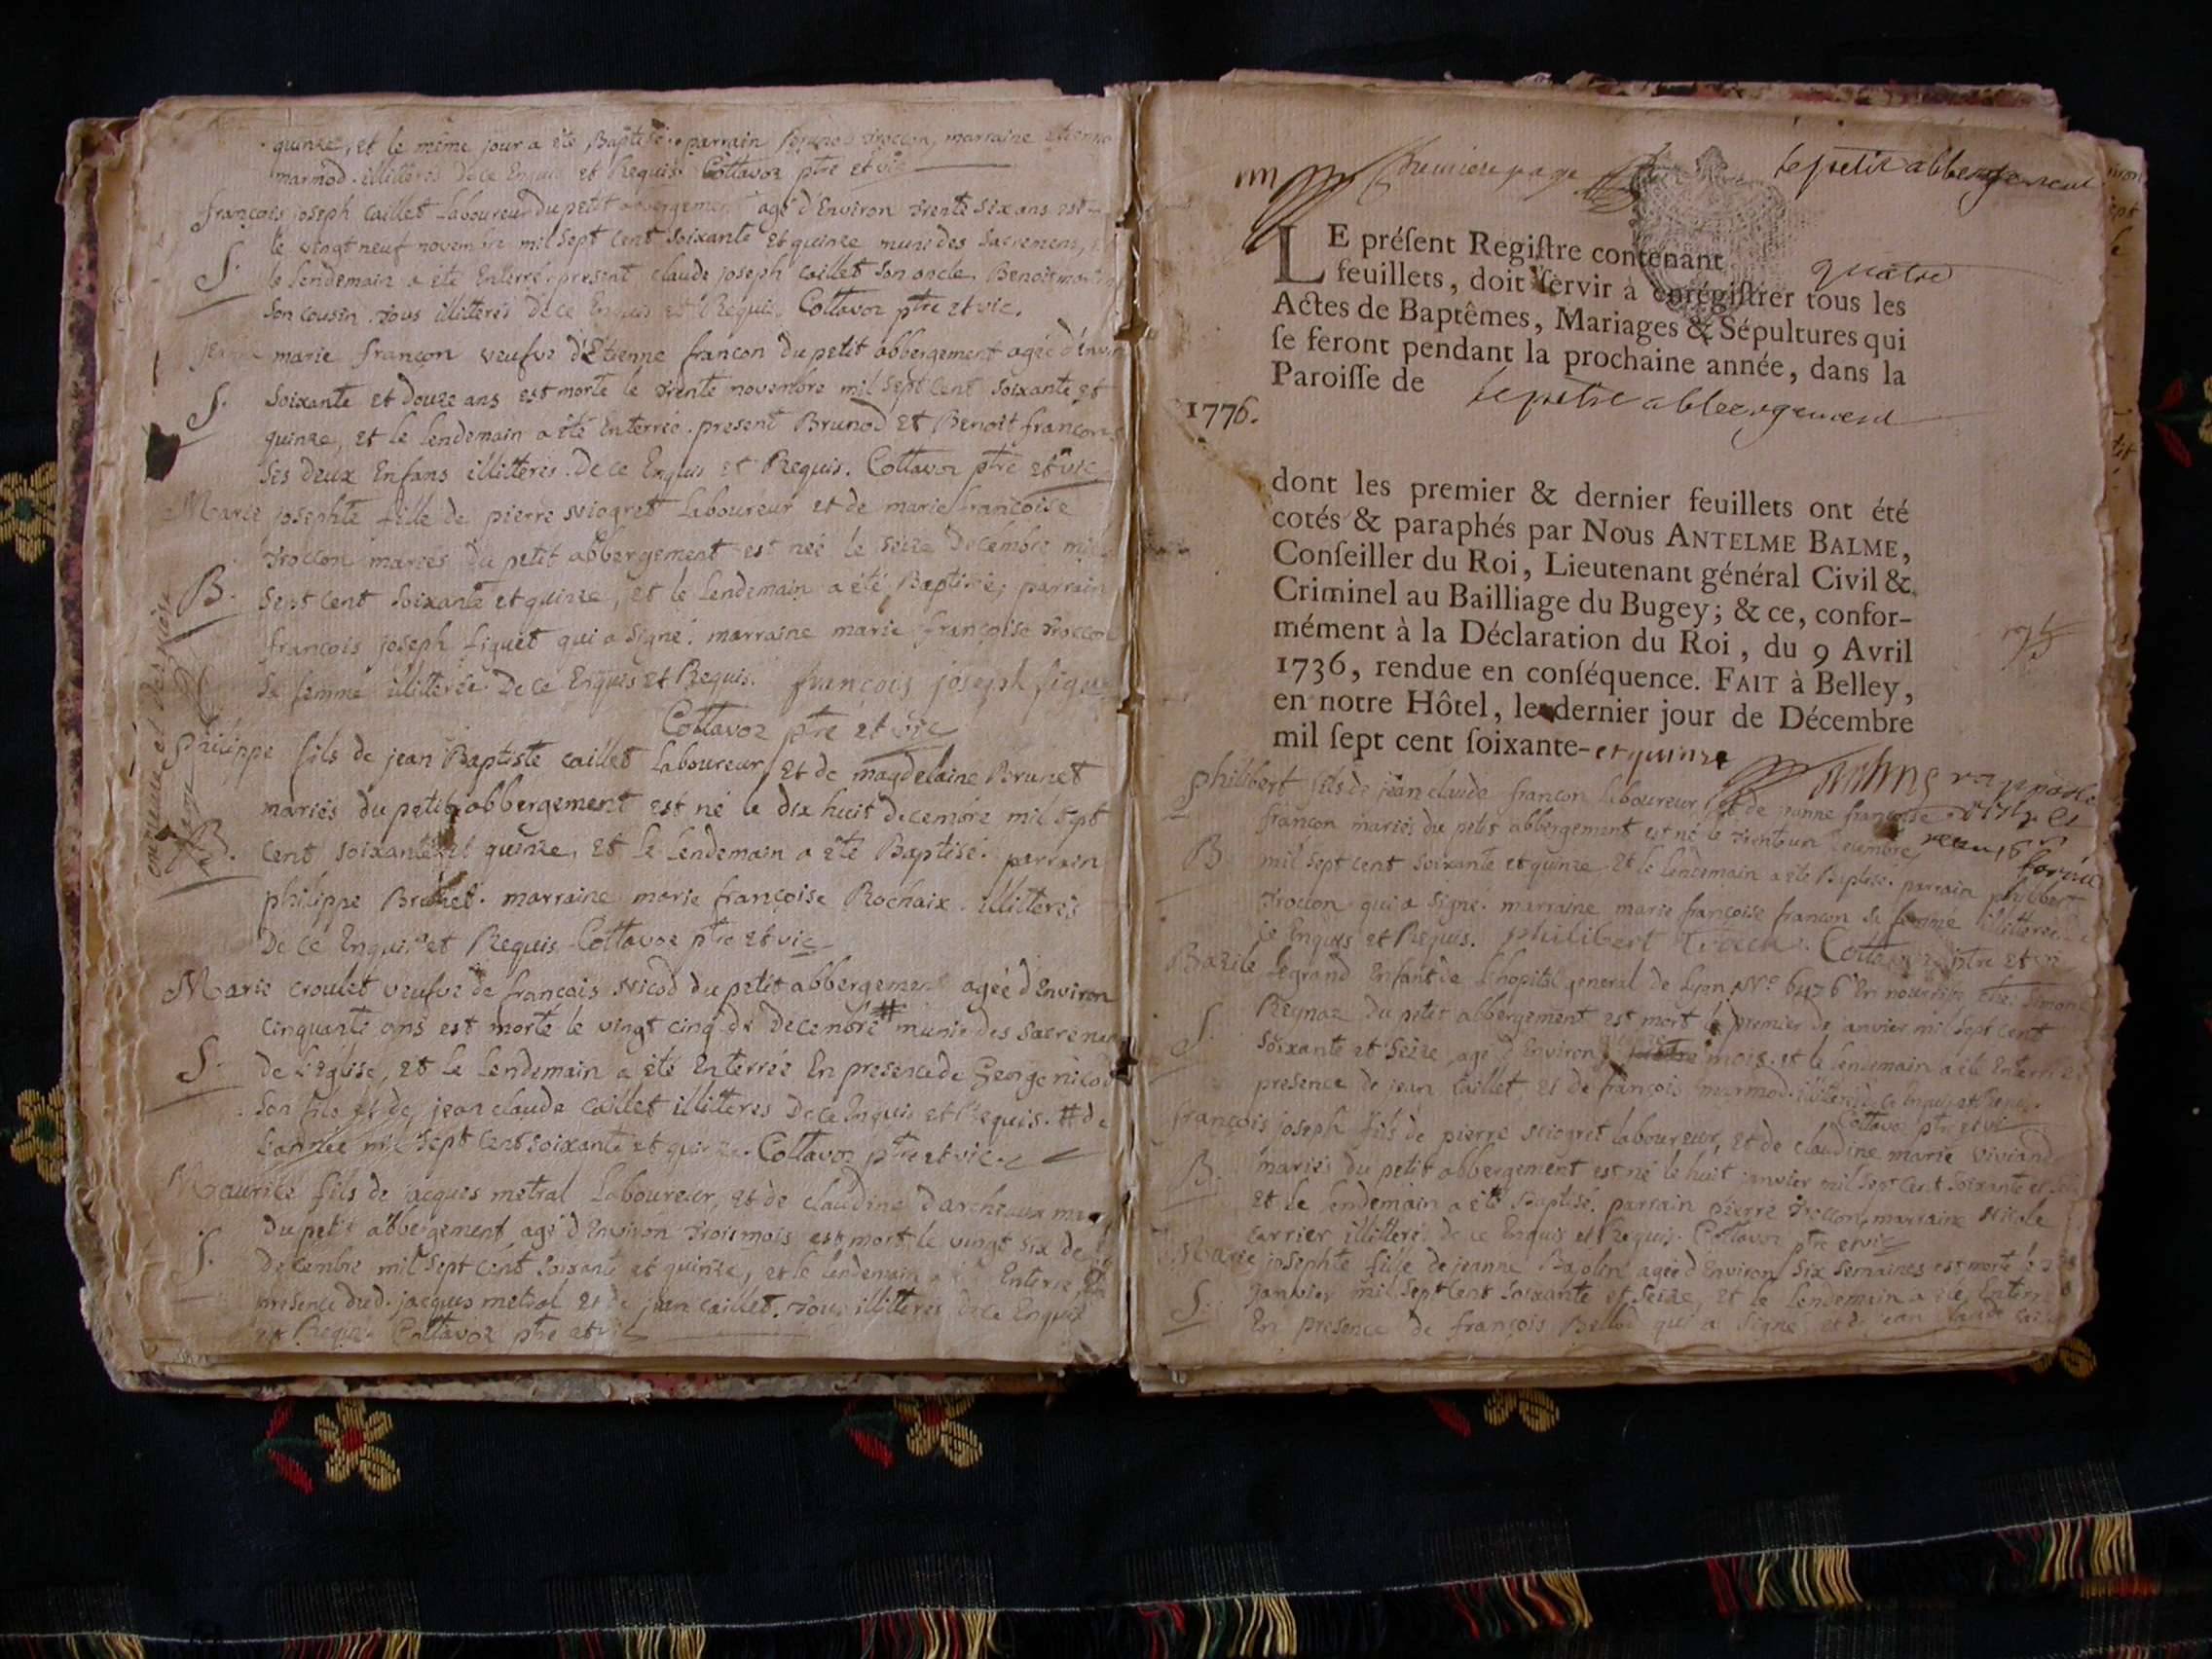 quinze, et le même jour a été Baptisé. parrain Brunod troccon, marraine etienne
marmod. illitterés De ce Enquis et Requis. Cottavoz ptre et vic
françois joseph caillet Laboureur Du petit abbergement agé d'Environ trente six ans est
le vingt neuf novembre mil sept cent soixante et quinze muni des sacremens,
S. le lendemain a été Enterré. present claude joseph caillet son oncle Benoit
son cousin. tous illitterés De ce Enquis et Requis. Cottavoz ptre et vic.
jeanne marie françon veufve d'Etienne françon Du petit abbergement agée d'environ
S. soixante et douze ans est morte le trente novembre mil sept cent soixante et
quinze, et le lendemain a été Enterrée. present Brunod et Benoit françon
ses deux Enfans illitterés. De ce Enquis et Requis. Cottavoz ptre et vic
Marie josephte fille de pierre Niogret Laboureur et de marie françoise
troccon mariés Du petit abbergement est née le seize Decembre mil
B. sept cent soixante et quinze, et le lendemain a été Baptisée, parrain
françois joseph figuet qui a signé. marraine marie françoise troccon
sa femme illitterée. De ce Enquis et Requis. françois joseph figuet
Cottavoz ptre et vic
philippe fils de jean Baptiste caillet Laboureur, et de magdelaine Brunet
mariés du petit abbergement est né le dix huit decembre mil sept
B. cent soixante et quinze, et le lendemain a été Baptisé. parrain
philippe Brunet. marraine marie françoise Rochaix. illitterés
De ce Enquis et Requis. Cottavoz ptre et vic
Marie croulet veufve de françois Nicod du petit abbergement agée d'Environ
cinquante ans est morte le vingt cinq de decembre # munie des sacremens
S. de L'église, et le lendemain a été Enterrée En presence de George nicod
son fils et de jean claude caillet illitterés De ce Enquis et Requis. # de
L'année mil sept cent soixante et quinze. Cottavoz ptre et vic.
Maurice fils de jacques metral Laboureur, et de claudine Darcheaux
Du petit abbergement, agé d'Environ trois mois est mort le vingt six de
S. Decembre mil sept cent soixante et quinze, et le lendemain a été Enterré
presence dud. jacques metral et de jean caillet. tous illitterés De ce Enquis
et Requis. Cottavoz ptre et vic
premiere page
le petit abbergement
LE préſent Regiſtre contenant quatre
feuillets, doit ſervir à enrégiſtrer tous les
Actes de Baptêmes, Mariages & Sépultures qui
ſe feront pendant la prochaine année, dans la
Paroiſſe de le petit abbergement
1776.
dont les premier & dernier feuillets ont été
cotés & paraphés par Nous ANTELME BALME,
Conſeiller du Roi, Lieutenant général Civil &
Criminel au Bailliage du Bugey; & ce, confor-
mément à la Déclaration du Roi, du 9 Avril
1736, rendue en conſéquence. FAIT à Belley,
en notre Hôtel, le dernier jour de Décembre
mil ſept cent ſoixante- et quinze
philibert fils de jean claude françon laboureur, et de jeanne françoise
françon mariés du petit abbergement est né le trente un decembre
B mil sept cent soixante et quinze et le lendemain a été Baptisé. parrain philibert
troccon qui a signé. marraine marie françoise françon sa femme illitterée De
ce Enquis et Requis. philibert Cottavoz ptre et vic
Bazile Legrand Enfant de L'hopital general de Lyon No 6476 En nourrin
Reynaz Du petit abbergement est mort le premier de janvier mil sept cent
S. soixante et seize, agé d'Environ mois. et le lendemain a été Enterré
presence de jean Caillet et de françois marmod. illitterés De ce Enquis et Requis.
Cottavoz ptre et vic
françois joseph fils de pierre Niogret laboureur, et de claudine marie Viviand
B. mariés du petit abbergement est né le huit janvier mil sept cent soixante et
et le lendemain a été Baptisé. parrain pierre troccon, marraine Nicole
carrier illitterés de ce Enquis et Requis. Cottavoz ptre et vic
Marie josephte fille de jeanne Bajolin agée d'Environ six semaines est morte le
S. janvier mil sept cent soixante et seize, et le lendemain a été Enterrée
En presence de françois Bellod qui a signé et de jean claude